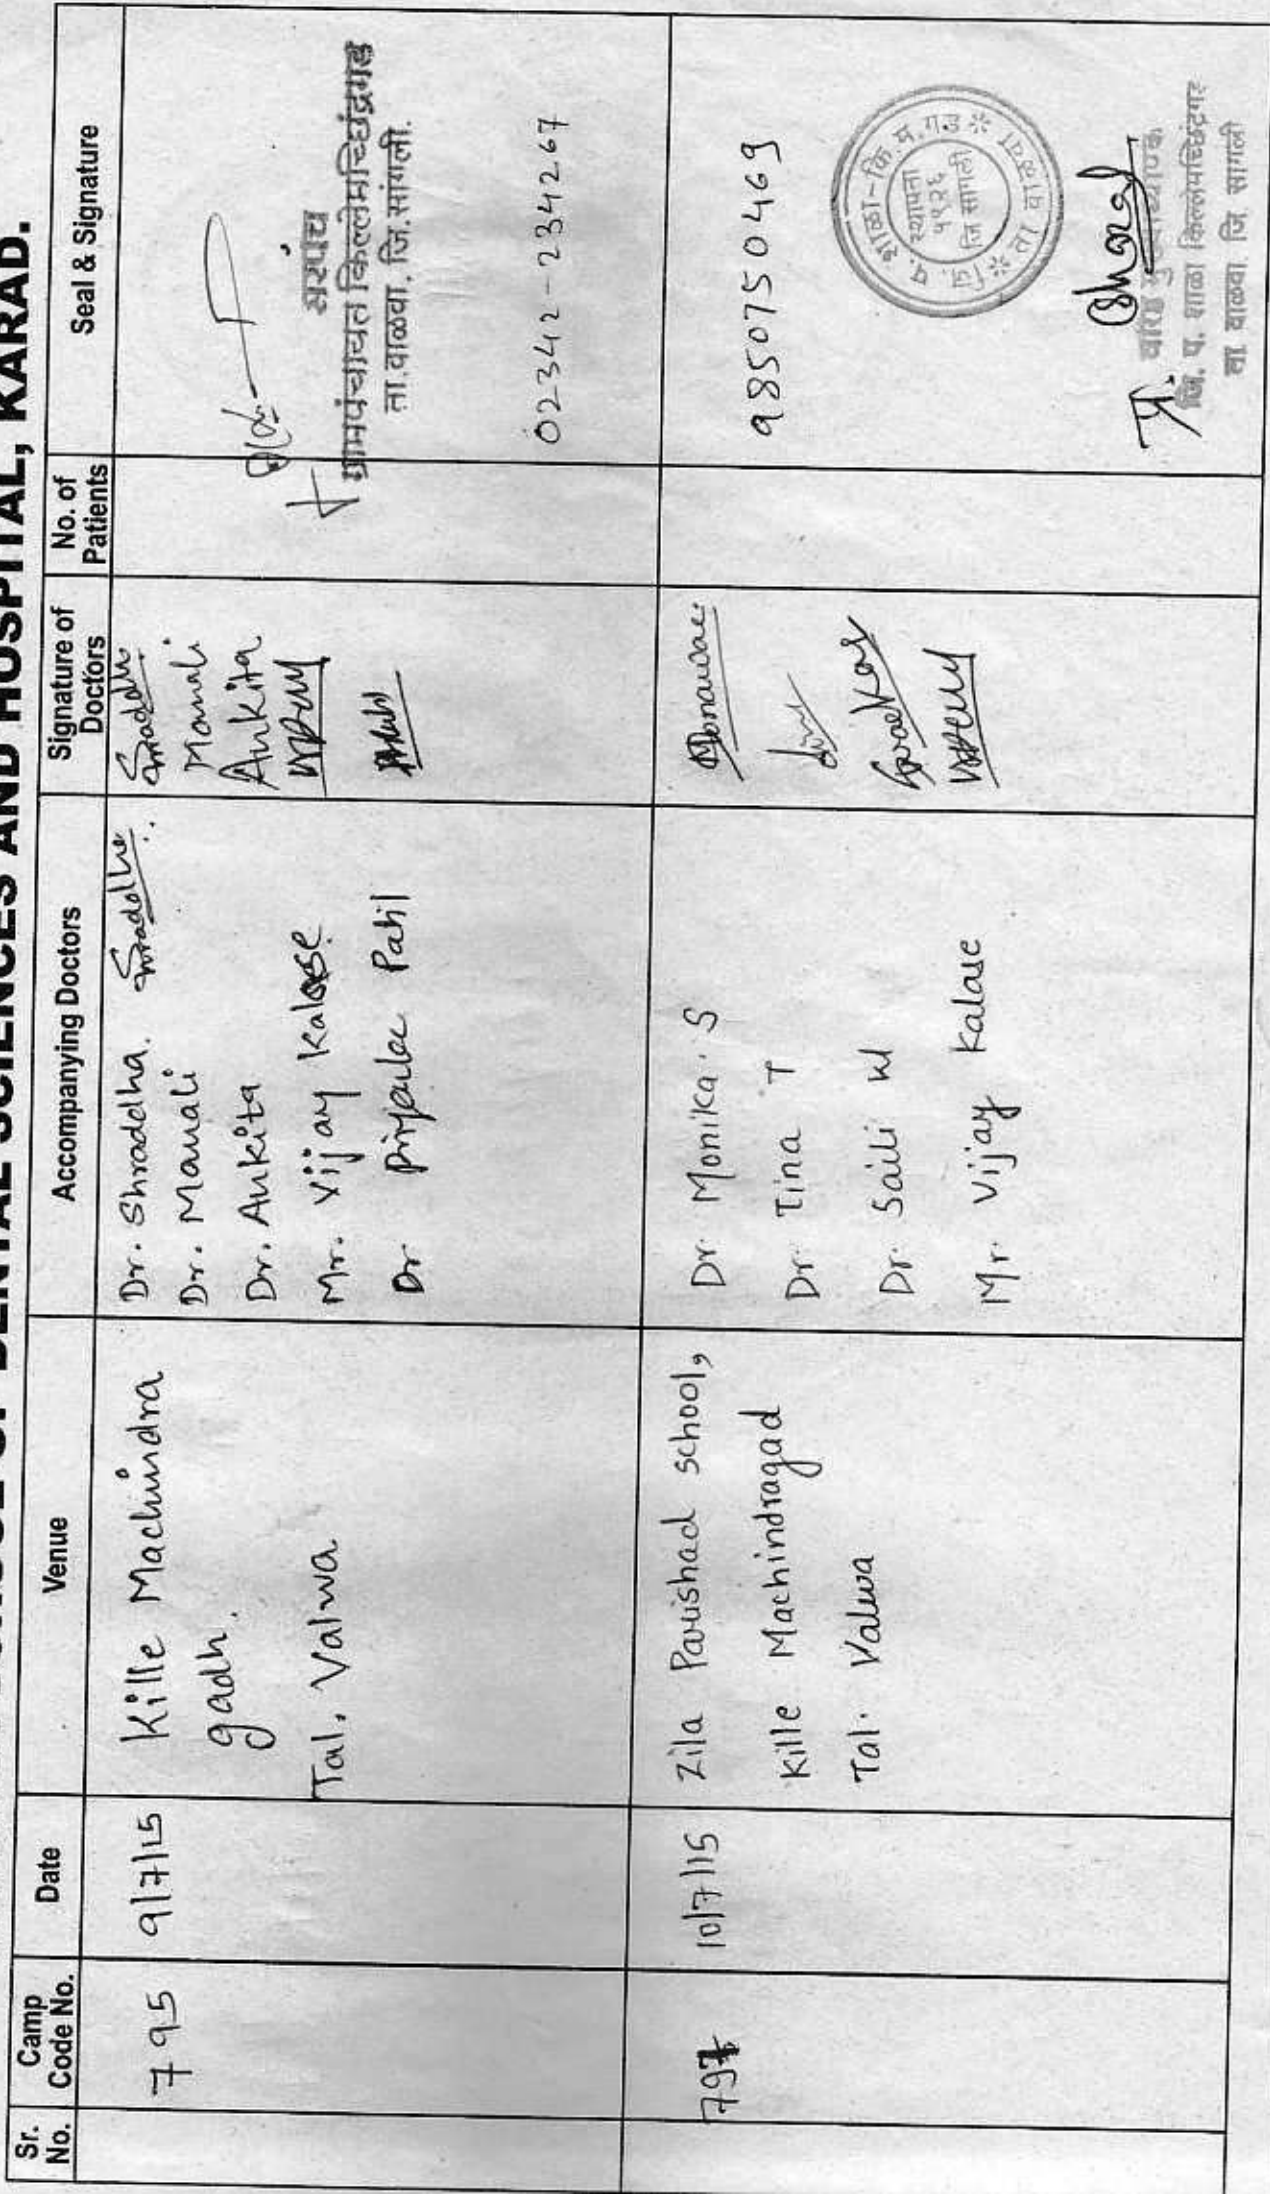 OF DENTAL SCIENCES AND HOSPITAL, KARAD.
Sr. No.
Camp Code No.
Date
Venue
Accompanying Doctors
Signature of Doctors
No. of Patients
Seal & Signature
795
9/7/15
Kille Machindra
gadh.
Tal. Valwa
Dr. Shraddha. Shraddha.
Dr. Manali
Dr. Ankita
Mr. Vijay Kalase
Dr. Priyanka Patil
Shraddha
Manali
Ankita
सरपंच
ग्रामपंचायत किल्लेमच्छिंद्रगड
ता.वाळवा, जि.सांगली.
02342-234267
797
10/7/15
Zila Parishad school,
Kille Machindragad
Tal. Valwa
Dr. Monika. S
Dr. Tina T
Dr. Saili W
Mr. Vijay Kalase
9850750469
जि. प. शाळा-कि.म.गड ता वाळवा
स्थापना
१९२६
जि सांगली
जि. प. शाळा किल्लेमच्छिंद्रगड
ता वाळवा जि सांगली